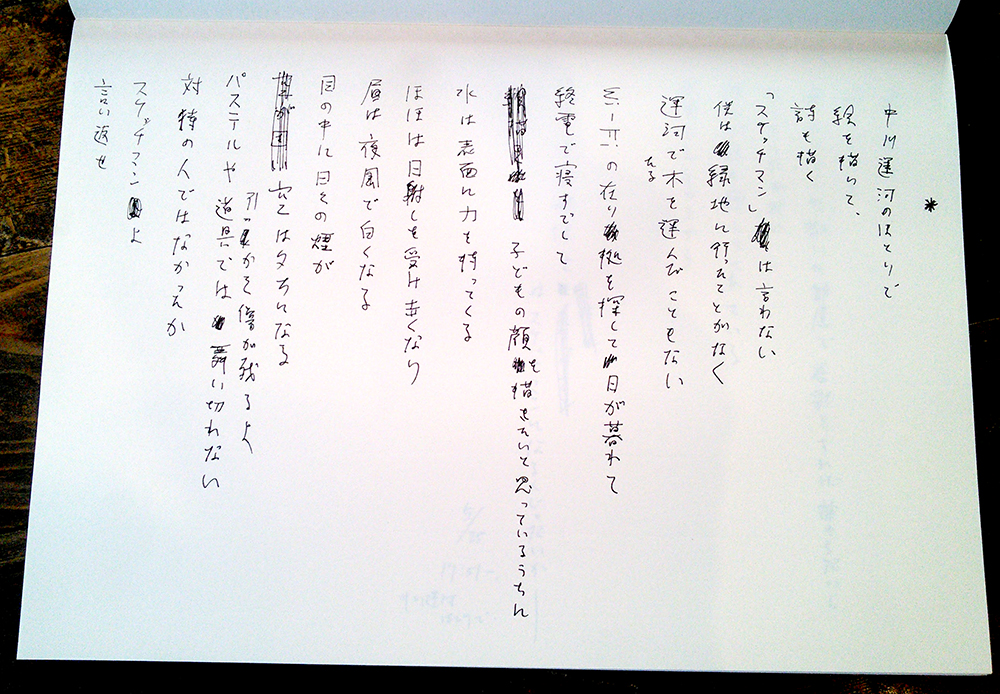 *
中川運河のほとりで
絵を描いて、
詩も描く
「スケッチマン」は言わない
僕は緑地に行ったことがなく
運河で木を運んだこともない
の在り処を探して日が暮れて
終電で寝すごして
子どもの顔を描きたいと思っているうちに
水は表面に力を持ってくる
ほほは日射しを受け赤くなり
眉は夜風で白くなる
目の中に日々の煙が
空は夕方になる
引っかかき傷が残るよ
パステルや道具では舞い切れない
対特の人ではなかったか
スケッチマンよ
言い返せ